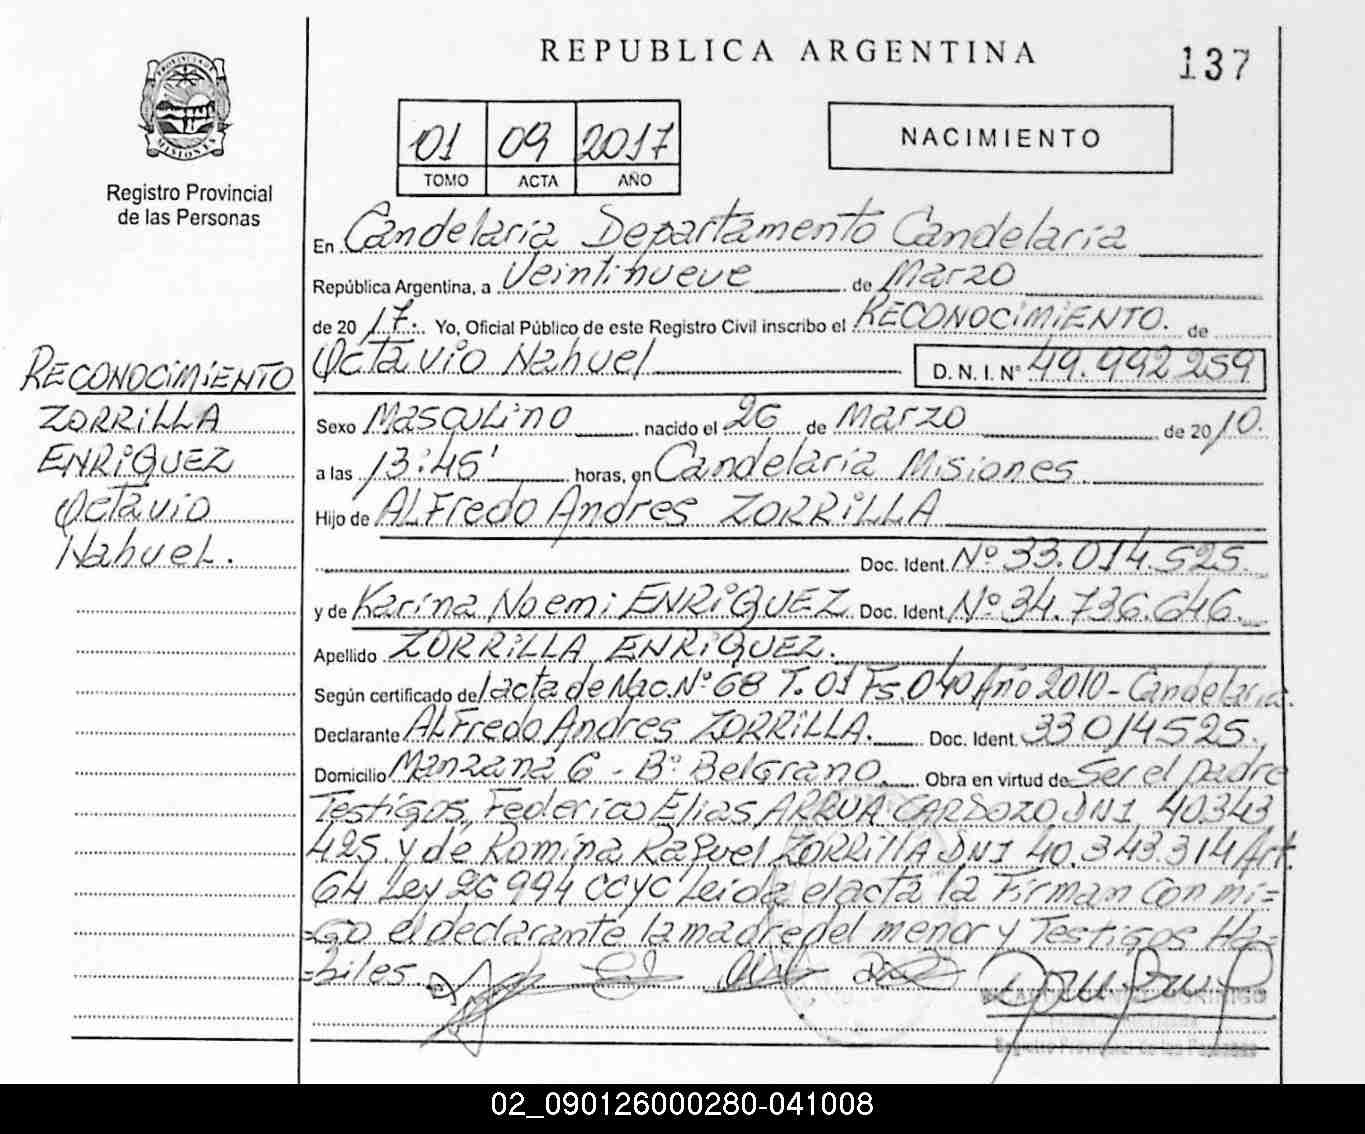 REPUBLICA ARGENTINA
137
PROVINCIA DE
MISIONES
Registro Provincial
de las Personas
01 09 2017
TOMO ACTA AÑO
NACIMIENTO
En Candelaria Departamento Candelaria
República Argentina, a Veintinueve de Marzo
de 2017. Yo, Oficial Público de este Registro Civil inscribo el RECONOCIMIENTO. de
Octavio Nahuel D. N. I. N° 49.992259
Sexo Masculino nacido el 26 de Marzo de 2010.
a las 13:45' horas, en Candelaria Misiones.
Hijo de Alfredo Andres ZORRILLA
Doc. Ident. Nº 33.014.525.
y de Karina Noemi ENRIQUEZ Doc. Ident. Nº 34.736.646.
Apellido ZORRILLA ENRIQUEZ.
Según certificado de l acta de Nac. Nº 68 T. 01 Fs. 040 Año 2010 - Candelaria.
Declarante Alfredo Andres ZORRILLA. Doc. Ident. 33014525.
Domicilio Manzana 6 - Bº Belgrano. Obra en virtud de Ser el padre
Testigos, Federico Elias ARRUA CARDOZO DNI 40.343
425. y de Romina Raquel ZORRILLA DNI 40.343.314 Art.
64 Ley 26994 CCYC Leida el acta la Firman con mi=
=go el declarante la madre del menor y Testigos Ha=
=biles.
RECONOCIMIENTO
ZORRILLA
ENRIQUEZ
Octavio
Nahuel.
Registro Provincial de las Personas
02_090126000280-041008